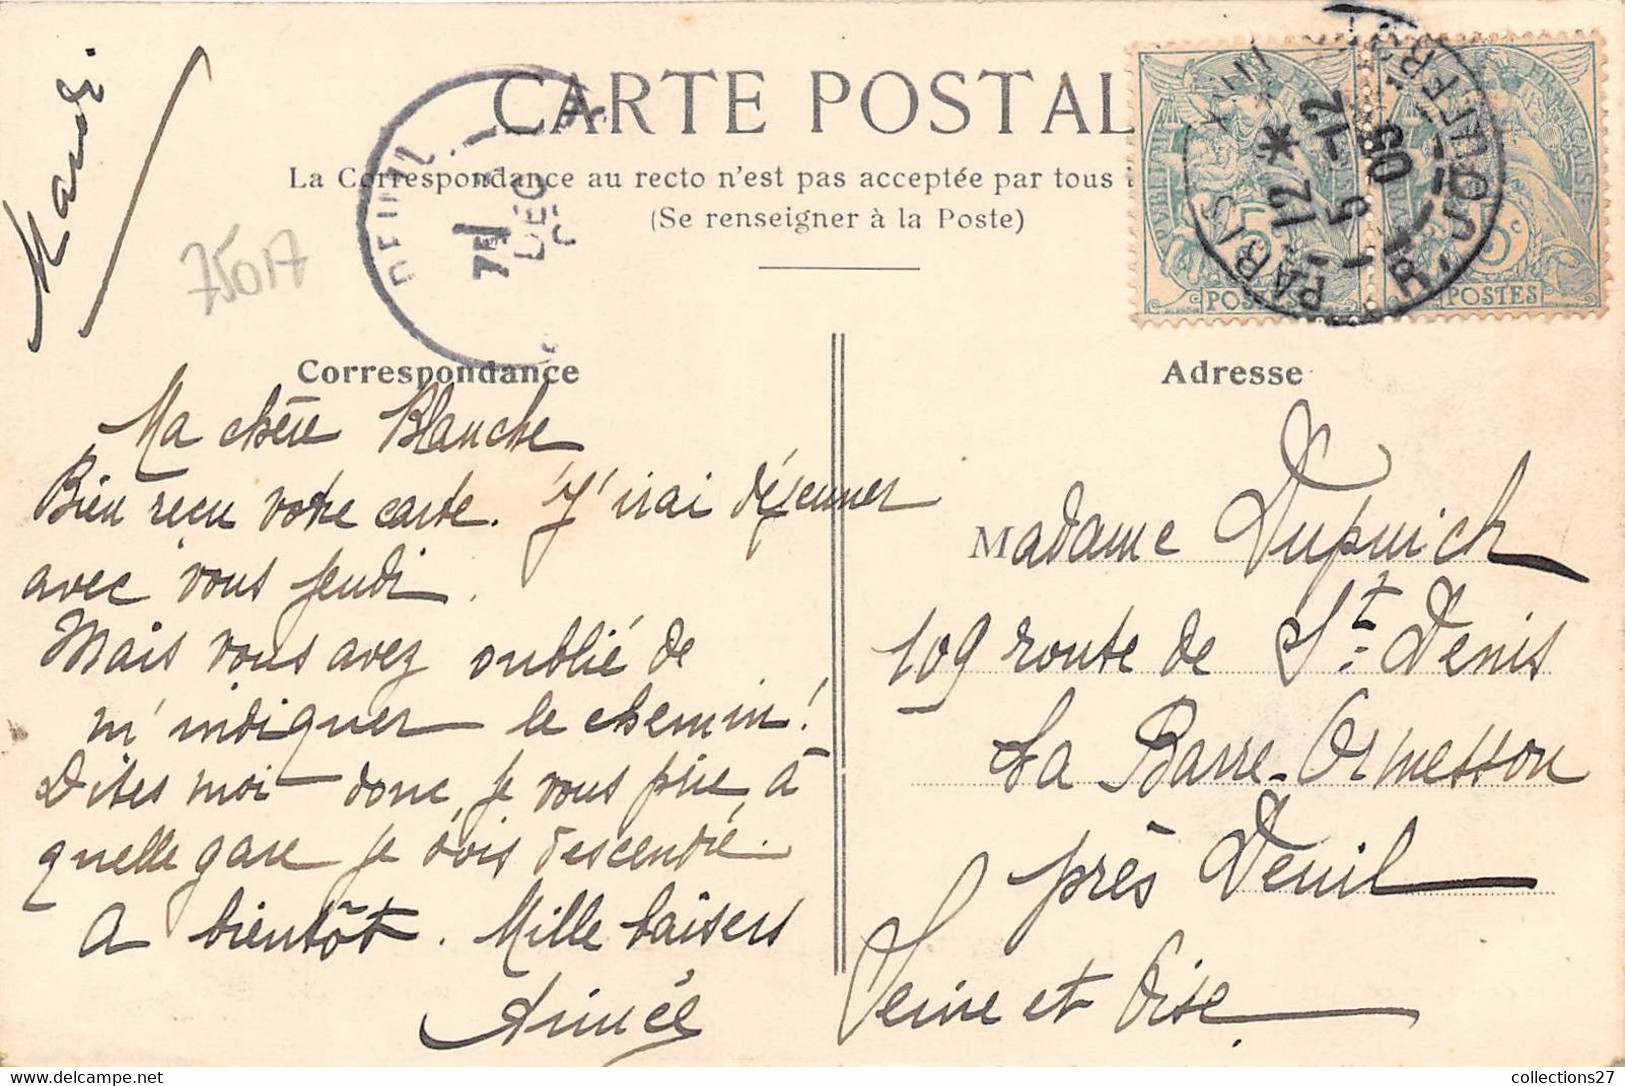 Mardi.
75017
CARTE POSTAL
La Correspondance au recto n'est pas acceptée par tous
(Se renseigner à la Poste)
DEUIL
DEC
PARIS XVII
12 *
5 -12
R. JOUFFROY
POSTES
POSTES
Correspondance
Ma chère Blanche
Bien reçu votre carte. J'irai déjeuner
avec vous jeudi.
Mais vous avez oublié de
m'indiquer le chemin!
Dites moi donc, je vous prie, à
quelle gare je dois descendre.
A bientôt. Mille baisers
Aimée
Adresse
Madame Dupuich
109 route de St. Denis
La Barre-Ormesson
près Deuil
Seine et Oise
collections27